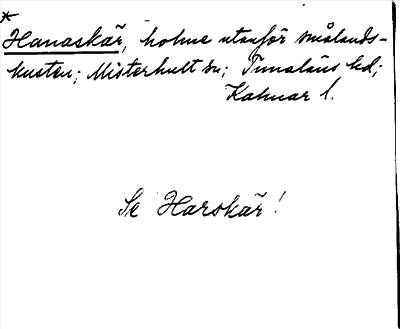 *
Hanaskär, holme utanför smålands-
kusten; Misterhult sn; Tunaläns hd;
Kalmar l.
Se Harskär!